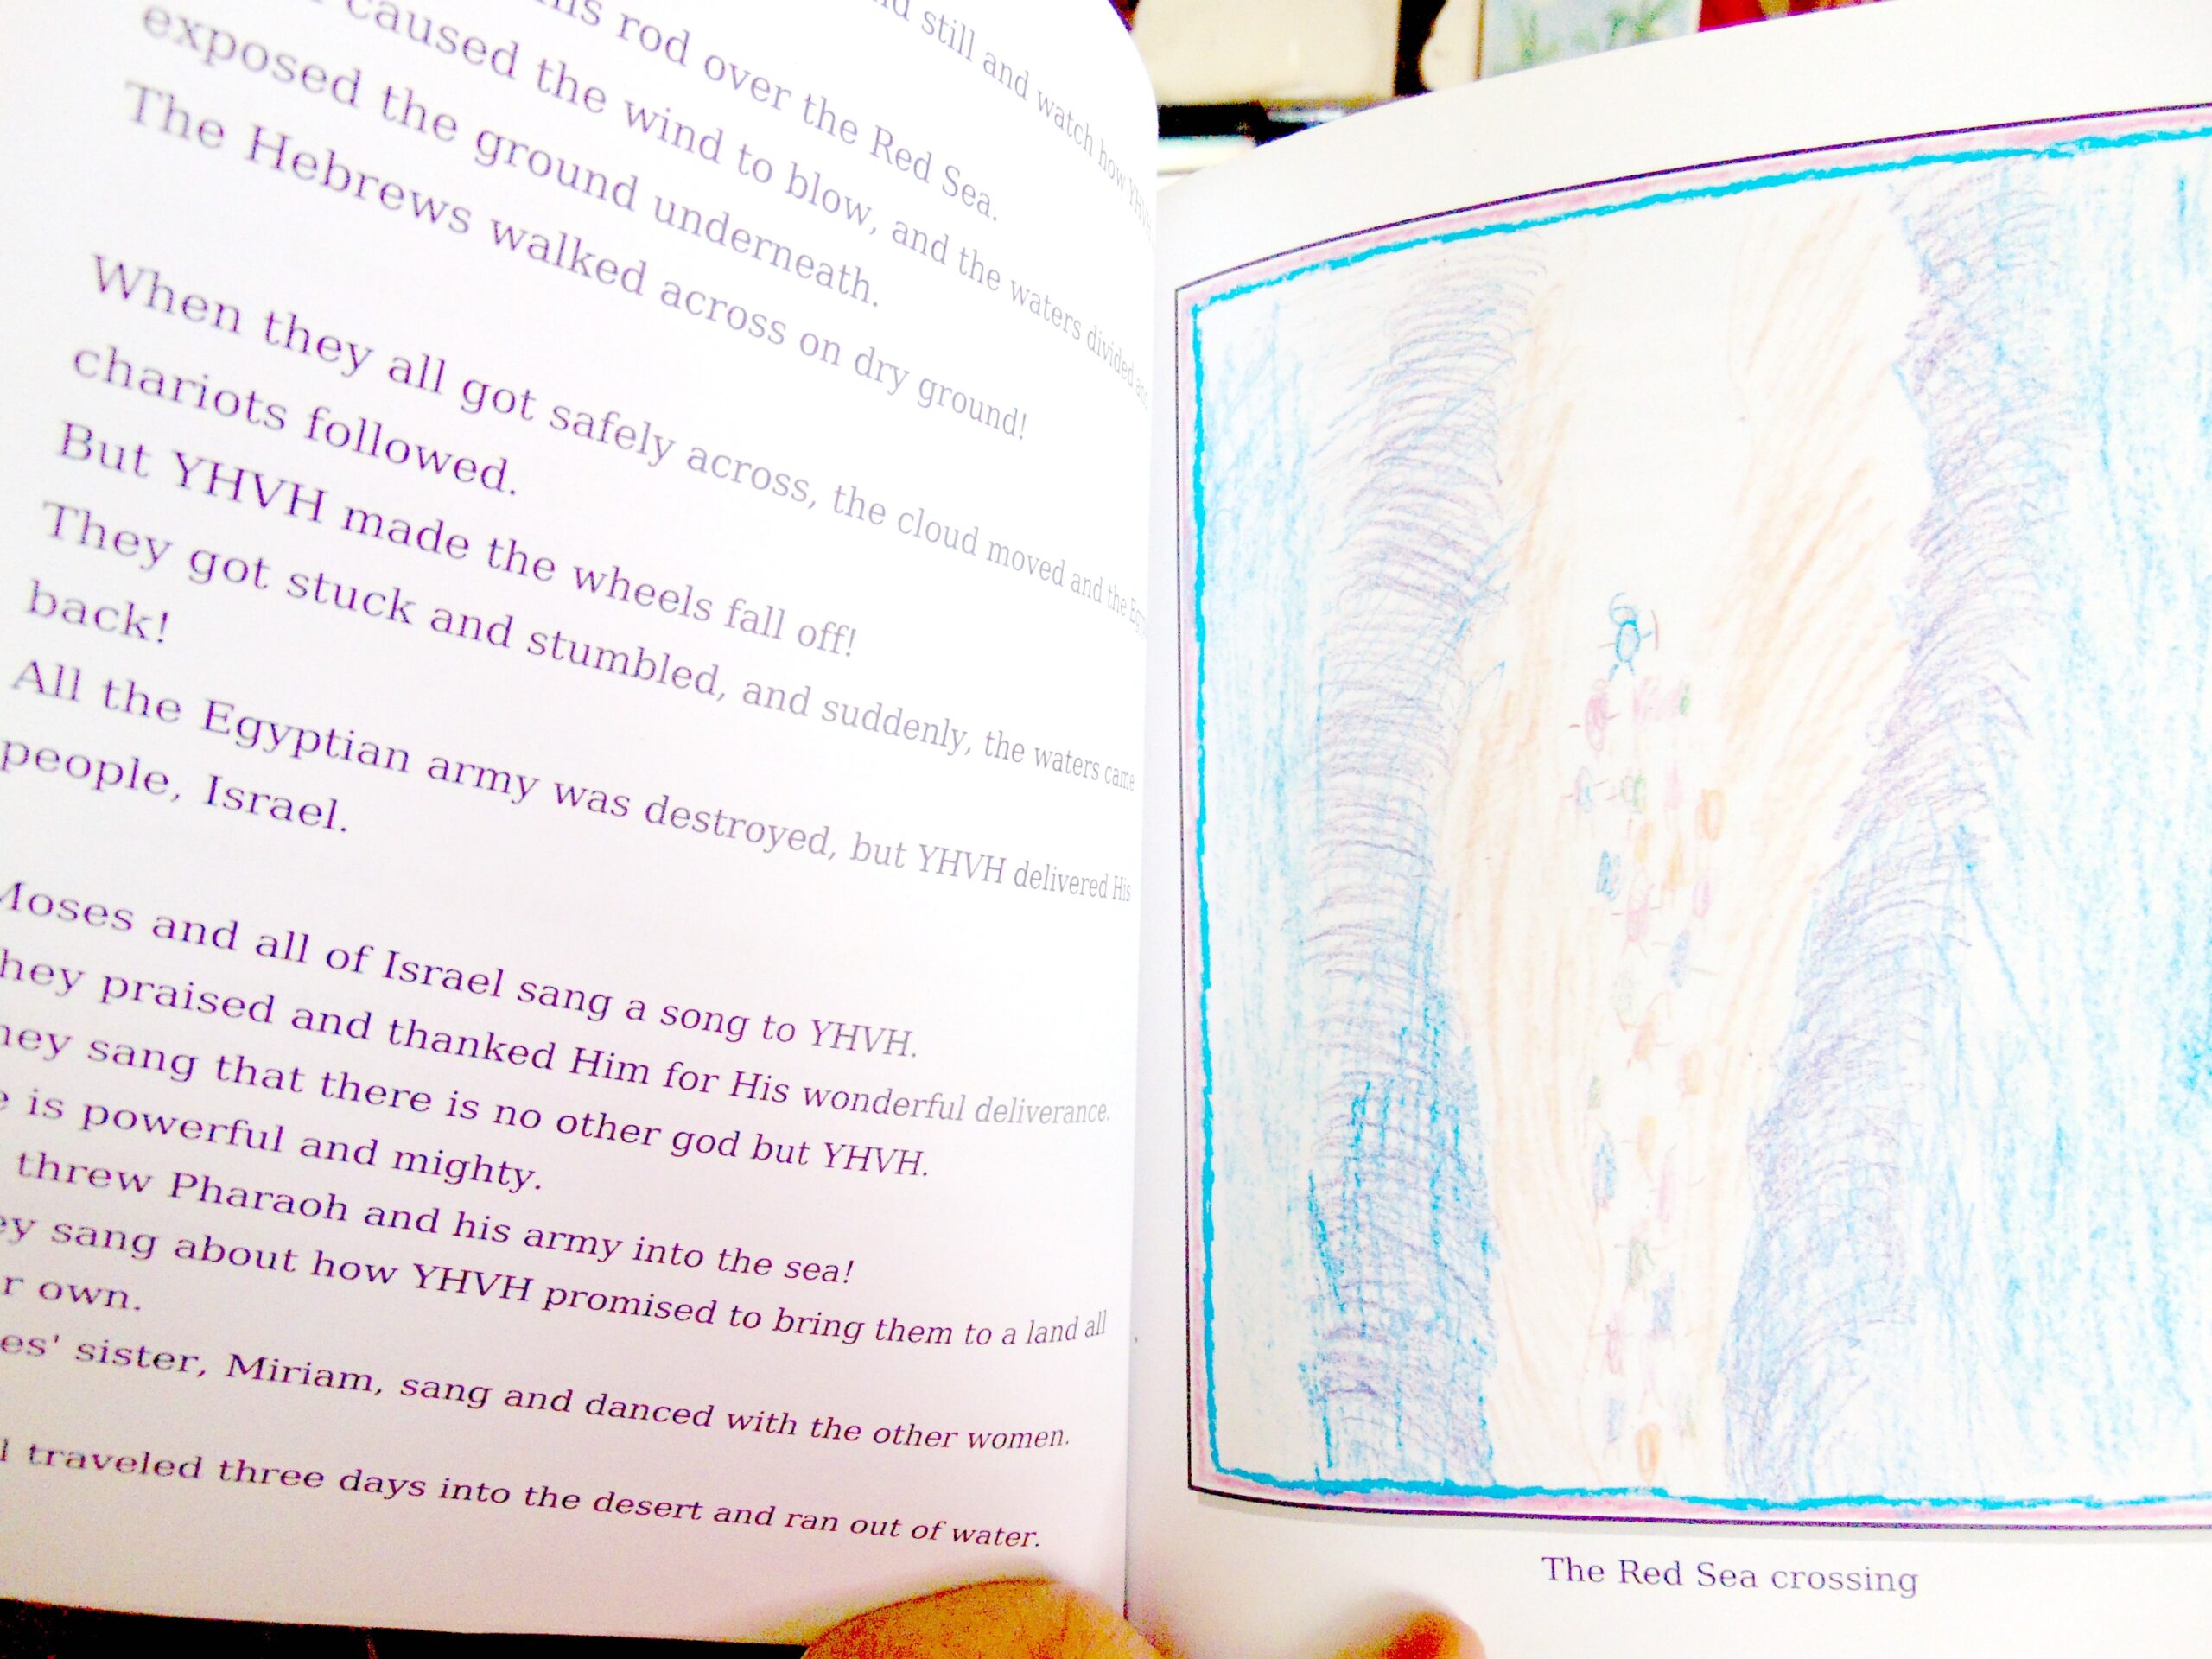 still and watch how YHVH
rod over the Red Sea.
caused the wind to blow, and the waters divided and
exposed the ground underneath.
The Hebrews walked across on dry ground!
When they all got safely across, the cloud moved and the
chariots followed.
But YHVH made the wheels fall off!
They got stuck and stumbled, and suddenly, the waters came
back!
All the Egyptian army was destroyed, but YHVH delivered His
people, Israel.
Moses and all of Israel sang a song to YHVH.
hey praised and thanked Him for His wonderful deliverance.
hey sang that there is no other god but YHVH.
e is powerful and mighty.
threw Pharaoh and his army into the sea!
ey sang about how YHVH promised to bring them to a land all
r own.
es' sister, Miriam, sang and danced with the other women.
l traveled three days into the desert and ran out of water.
The Red Sea crossing